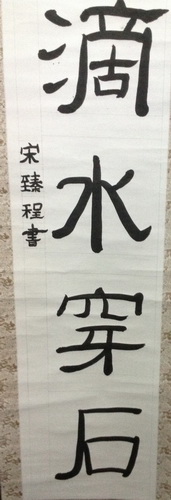 滴水穿石
宋臻程書